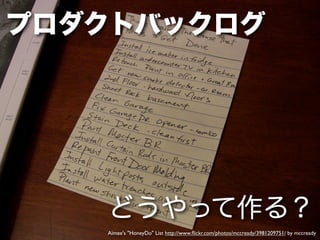 プロダクトバックログ
that
Get Dave
Install ice water in fridge
Install undercounter TV in kitchen
Retouch Paint on office + Great Rm
Get new smoke detector - en. Room
2nd Floor - hardwood floors
Sheet Rock basement
Clean Garage
Fix Garage Dr. opener - same
Stain Deck - clean first
Paint Master BR
Install Curtain Rods in Master BR
Repaint Front Door Molding
Install Lightposts outside
Install water trenches
Plant new
どうやって作る？
Ainaee's "HoneyDo" List http://www.flickr.com/photos/mccready/3981209751/ by mccready